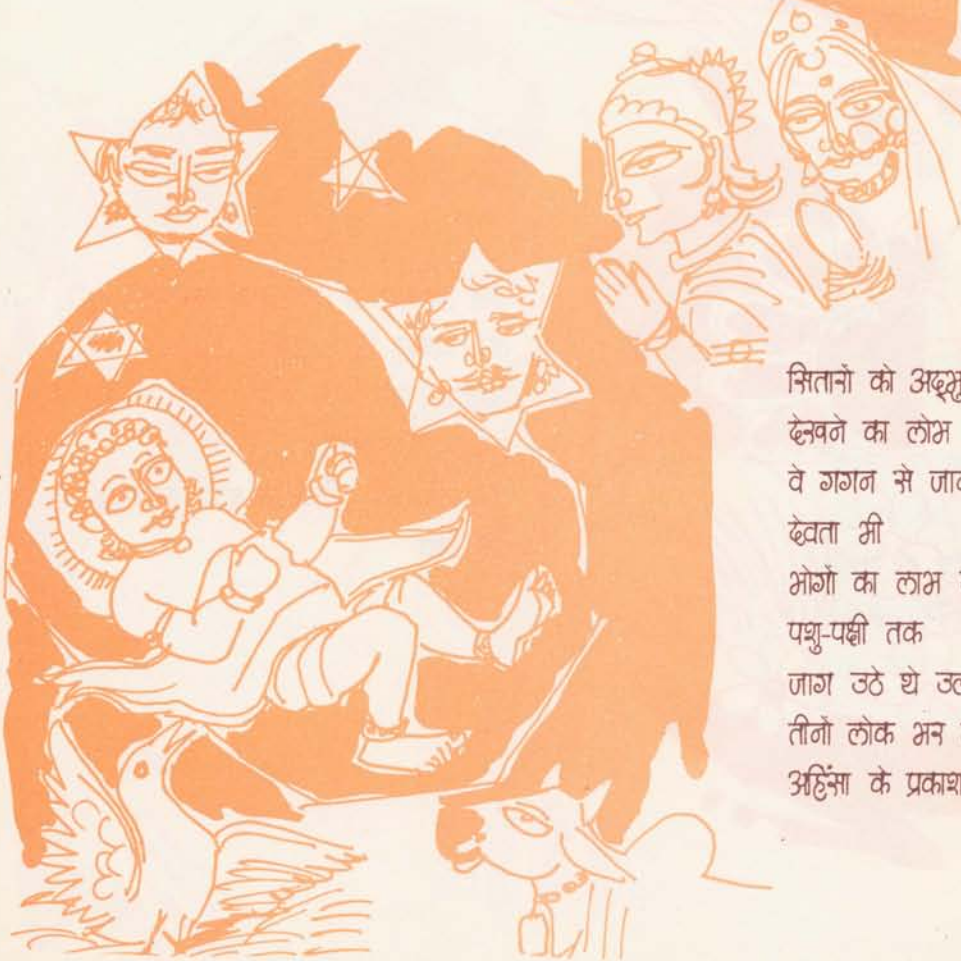 सितारों को
देखने का लोभ
वे गगन से
देवता भी
भोगों का लाभ
पशु-पक्षी तक
जाग उठे थे
तीनों लोक भर
अहिंसा के प्रकाश